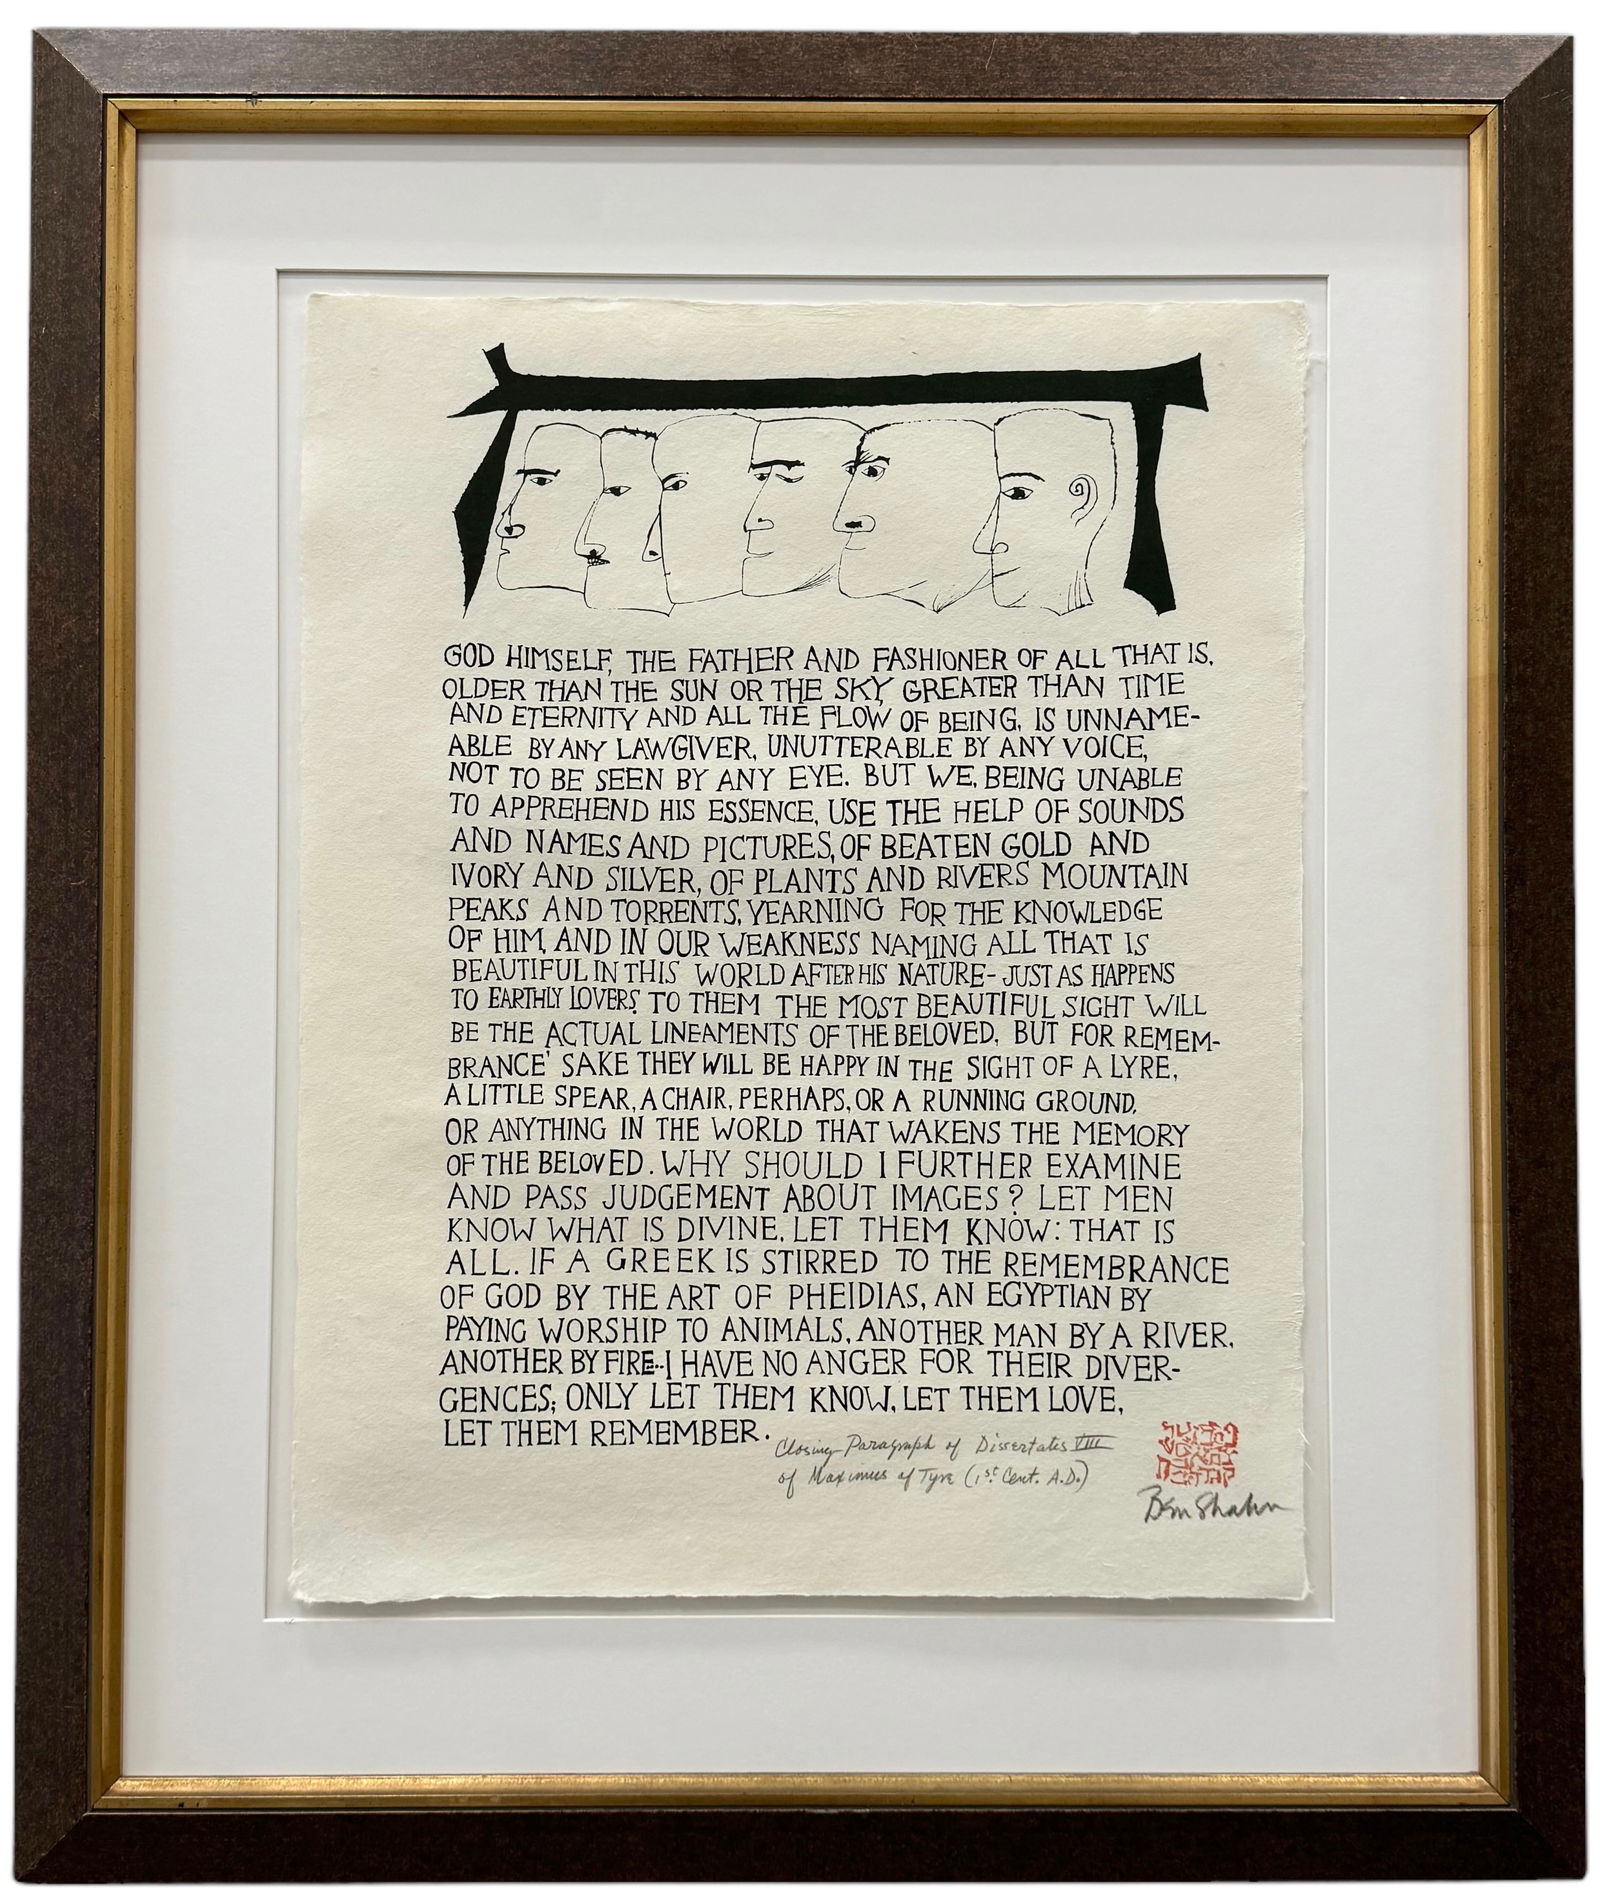 GOD HIMSELF, THE FATHER AND FASHIONER OF ALL THAT IS,
OLDER THAN THE SUN OR THE SKY, GREATER THAN TIME
AND ETERNITY AND ALL THE FLOW OF BEING, IS UNNAME-
ABLE BY ANY LAWGIVER, UNUTTERABLE BY ANY VOICE,
NOT TO BE SEEN BY ANY EYE. BUT WE, BEING UNABLE
TO APPREHEND HIS ESSENCE, USE THE HELP OF SOUNDS
AND NAMES AND PICTURES, OF BEATEN GOLD AND
IVORY AND SILVER, OF PLANTS AND RIVERS MOUNTAIN
PEAKS AND TORRENTS, YEARNING FOR THE KNOWLEDGE
OF HIM, AND IN OUR WEAKNESS NAMING ALL THAT IS
BEAUTIFUL IN THIS WORLD AFTER HIS NATURE- JUST AS HAPPENS
TO EARTHLY LOVERS. TO THEM THE MOST BEAUTIFUL SIGHT WILL
BE THE ACTUAL LINEAMENTS OF THE BELOVED, BUT FOR REMEM-
BRANCE' SAKE THEY WILL BE HAPPY IN THE SIGHT OF A LYRE,
A LITTLE SPEAR, A CHAIR, PERHAPS, OR A RUNNING GROUND,
OR ANYTHING IN THE WORLD THAT WAKENS THE MEMORY
OF THE BELOVED. WHY SHOULD I FURTHER EXAMINE
AND PASS JUDGEMENT ABOUT IMAGES? LET MEN
KNOW WHAT IS DIVINE, LET THEM KNOW: THAT IS
ALL. IF A GREEK IS STIRRED TO THE REMEMBRANCE
OF GOD BY THE ART OF PHEIDIAS, AN EGYPTIAN BY
PAYING WORSHIP TO ANIMALS, ANOTHER MAN BY A RIVER,
ANOTHER BY FIRE--I HAVE NO ANGER FOR THEIR DIVER-
GENCES; ONLY LET THEM KNOW, LET THEM LOVE,
LET THEM REMEMBER.
Closing Paragraph of Dissertates VIII
of Maximus of Tyre (1st Cent. A.D.)
Ben Shahn